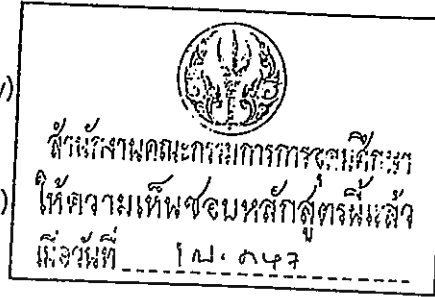 สำนักงานคณะกรรมการการอุดมศึกษา
ให้ความเห็นชอบหลักสูตรนี้แล้ว
เมื่อวันที่